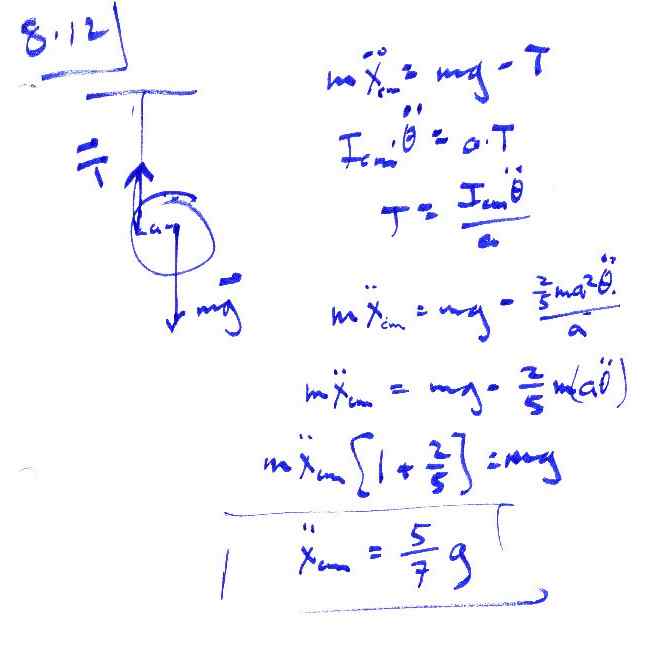 8.12
mẍcm = mg - T
Icm θ̈ = a·T
T = Icm θ̈ / a
T
a
mg
mẍcm = mg - 2/5 ma² θ̈ / a
mẍcm = mg - 2/5 m(aθ̈)
mẍcm [1 + 2/5] = mg
ẍcm = 5/7 g